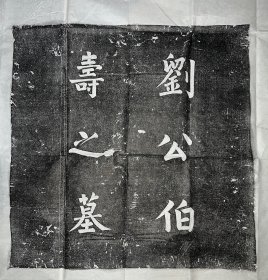 劉公伯
壽之墓